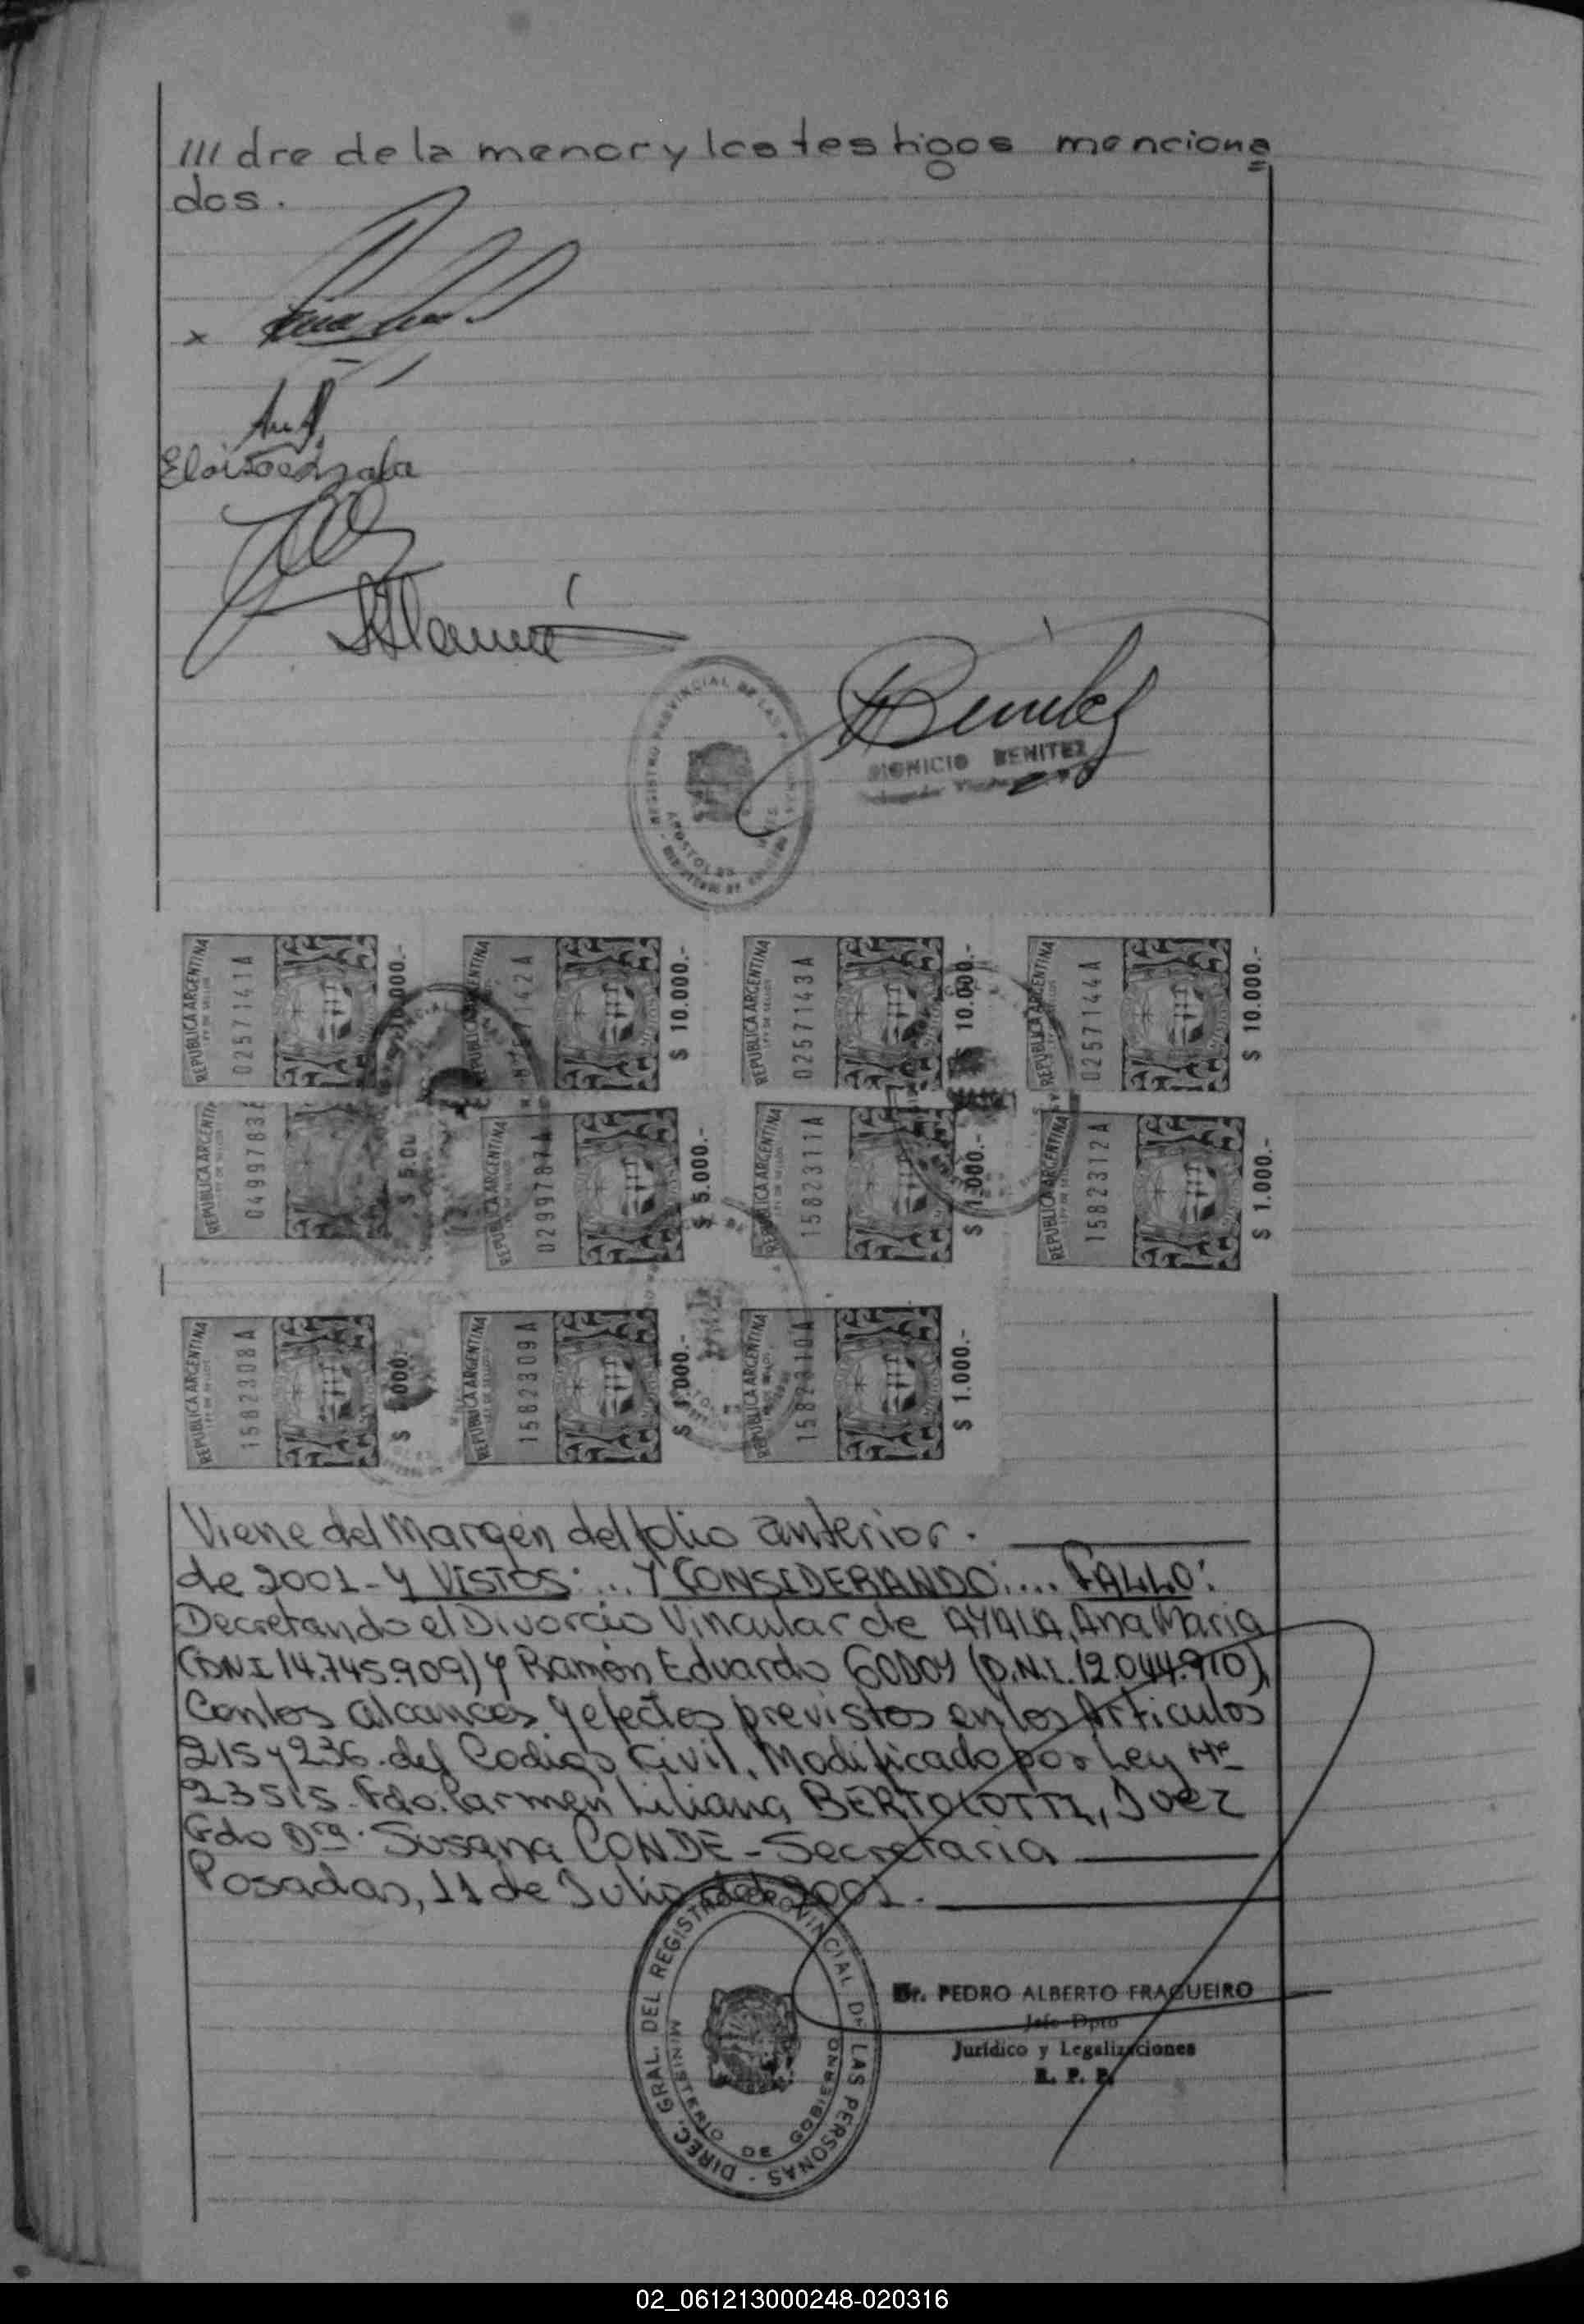 /// dre de la menor y los testigos menciona
dos.
x
Eloisa
Benitez
DIONICIO BENITEZ
REGISTRO PROVINCIAL DE LAS
APOSTOLES
REPUBLICA ARGENTINA
LEY DE SELLOS
0257141A
REPUBLICA ARGENTINA
$ 10.000.-
REPUBLICA ARGENTINA
LEY DE SELLOS
0257143A
$ 10.000.-
REPUBLICA ARGENTINA
0257144A
$ 10.000.-
REPUBLICA ARGENTI
0499783
$ 5.0
REPUBLICA ARGENTINA
0299787A
$ 5.000.-
REPUBLICA ARGENTINA
1582311A
$ 1.000.-
REPUBLICA ARGENTINA
1582312A
$ 1.000.-
REPUBLICA ARGENTINA
1582308A
$ 1.000.-
REPUBLICA ARGENTINA
1582309A
$ 1.000.-
REPUBLICA ARGENTINA
1582310A
$ 1.000.-
Viene del Margen del folio anterior.
de 2001- Y VISTOS:... Y CONSIDERANDO:.... FALLO:
Decretando el Divorcio Vincular de AYALA, Ana Maria
(DNI 14.745.909) y Ramón Eduardo GODOY (D.N.I. 12.044.910),
Con los alcances y efectos previstos en los Articulos
215 y 236. del Codigo Civil, Modificado por Ley Nº
23515. Fdo. Carmen Liliana BERTOLOTTI, Juez
Fdo Dra. Susana CONDE - Secretaria
Posadas, 11 de Julio del 2001.
DIREC. GRAL. DEL REGISTRO PROVINCIAL DE LAS PERSONAS -
MINISTERIO DE GOBIERNO
Dr. PEDRO ALBERTO FRAGUEIRO
Jefe Dpto
Jurídico y Legalizaciones
R. P. P.
02_061213000248-020316